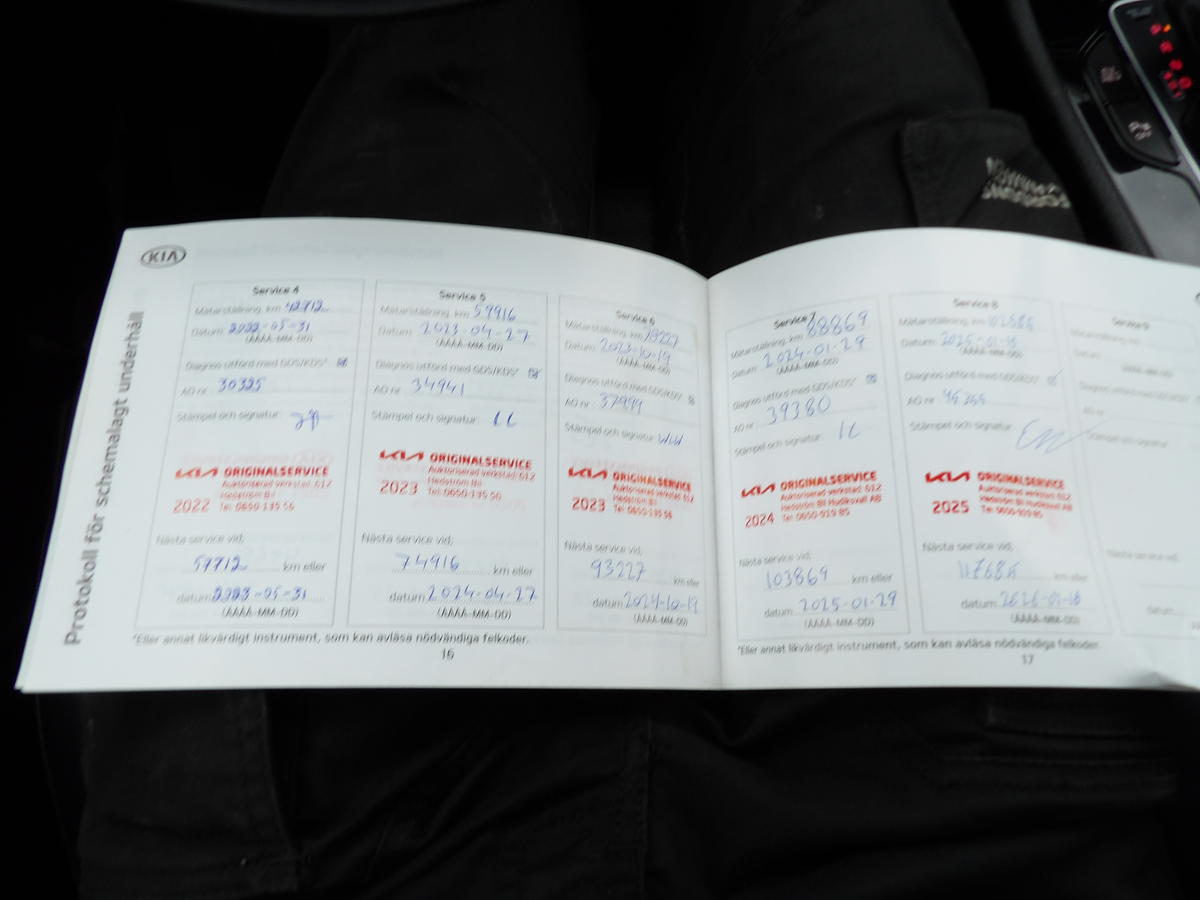 KIA
Protokoll för schemalagt underhåll
Service 4
Mätarställning, km 42712
Datum 2022-05-31
(ÅÅÅÅ-MM-DD)
Diagnos utförd med GDS/KDS*
AO nr 30325
Stämpel och signatur
KIA ORIGINALSERVICE
Auktoriserad verkstad: 612
Hedström Bil
2022 Tel: 0650-135 56
Nästa service vid,
57712 km eller
datum 2023-05-31
(ÅÅÅÅ-MM-DD)
Service 5
Mätarställning, km 59916
Datum 2023-04-27
(ÅÅÅÅ-MM-DD)
Diagnos utförd med GDS/KDS*
AO nr 34941
Stämpel och signatur
KIA ORIGINALSERVICE
Auktoriserad verkstad: 612
Hedström Bil
2023 Tel: 0650-135 56
Nästa service vid,
74916 km eller
datum 2024-04-27
(ÅÅÅÅ-MM-DD)
Service 6
Mätarställning, km 78227
Datum 2023-10-19
(ÅÅÅÅ-MM-DD)
Diagnos utförd med GDS/KDS*
AO nr 37999
Stämpel och signatur
KIA ORIGINALSERVICE
Auktoriserad verkstad: 612
Hedström Bil
2023 Tel: 0650-135 56
Nästa service vid,
93227 km eller
datum 2024-10-19
(ÅÅÅÅ-MM-DD)
*Eller annat likvärdigt instrument, som kan avläsa nödvändiga felkoder.
16
Service 7
Mätarställning, km 88869
Datum 2024-01-29
(ÅÅÅÅ-MM-DD)
Diagnos utförd med GDS/KDS*
AO nr 39380
Stämpel och signatur
KIA ORIGINALSERVICE
Auktoriserad verkstad: 612
Hedström Bil Hudiksvall AB
2024 Tel: 0650-919 85
Nästa service vid,
103869 km eller
datum 2025-01-29
(ÅÅÅÅ-MM-DD)
Service 8
Mätarställning, km 102686
Datum 2025-01-16
(ÅÅÅÅ-MM-DD)
Diagnos utförd med GDS/KDS*
AO nr
Stämpel och signatur
KIA ORIGINALSERVICE
Auktoriserad verkstad: 612
Hedström Bil Hudiksvall AB
2025 Tel: 0650-919 85
Nästa service vid,
117686 km eller
datum 2026-01-16
(ÅÅÅÅ-MM-DD)
Service 9
Mätarställning, km
Datum
(ÅÅÅÅ-MM-DD)
Diagnos utförd med
AO nr
Stämpel och signatur
Nästa service vid,
datum
*Eller annat likvärdigt instrument, som kan avläsa nödvändiga felkoder.
17